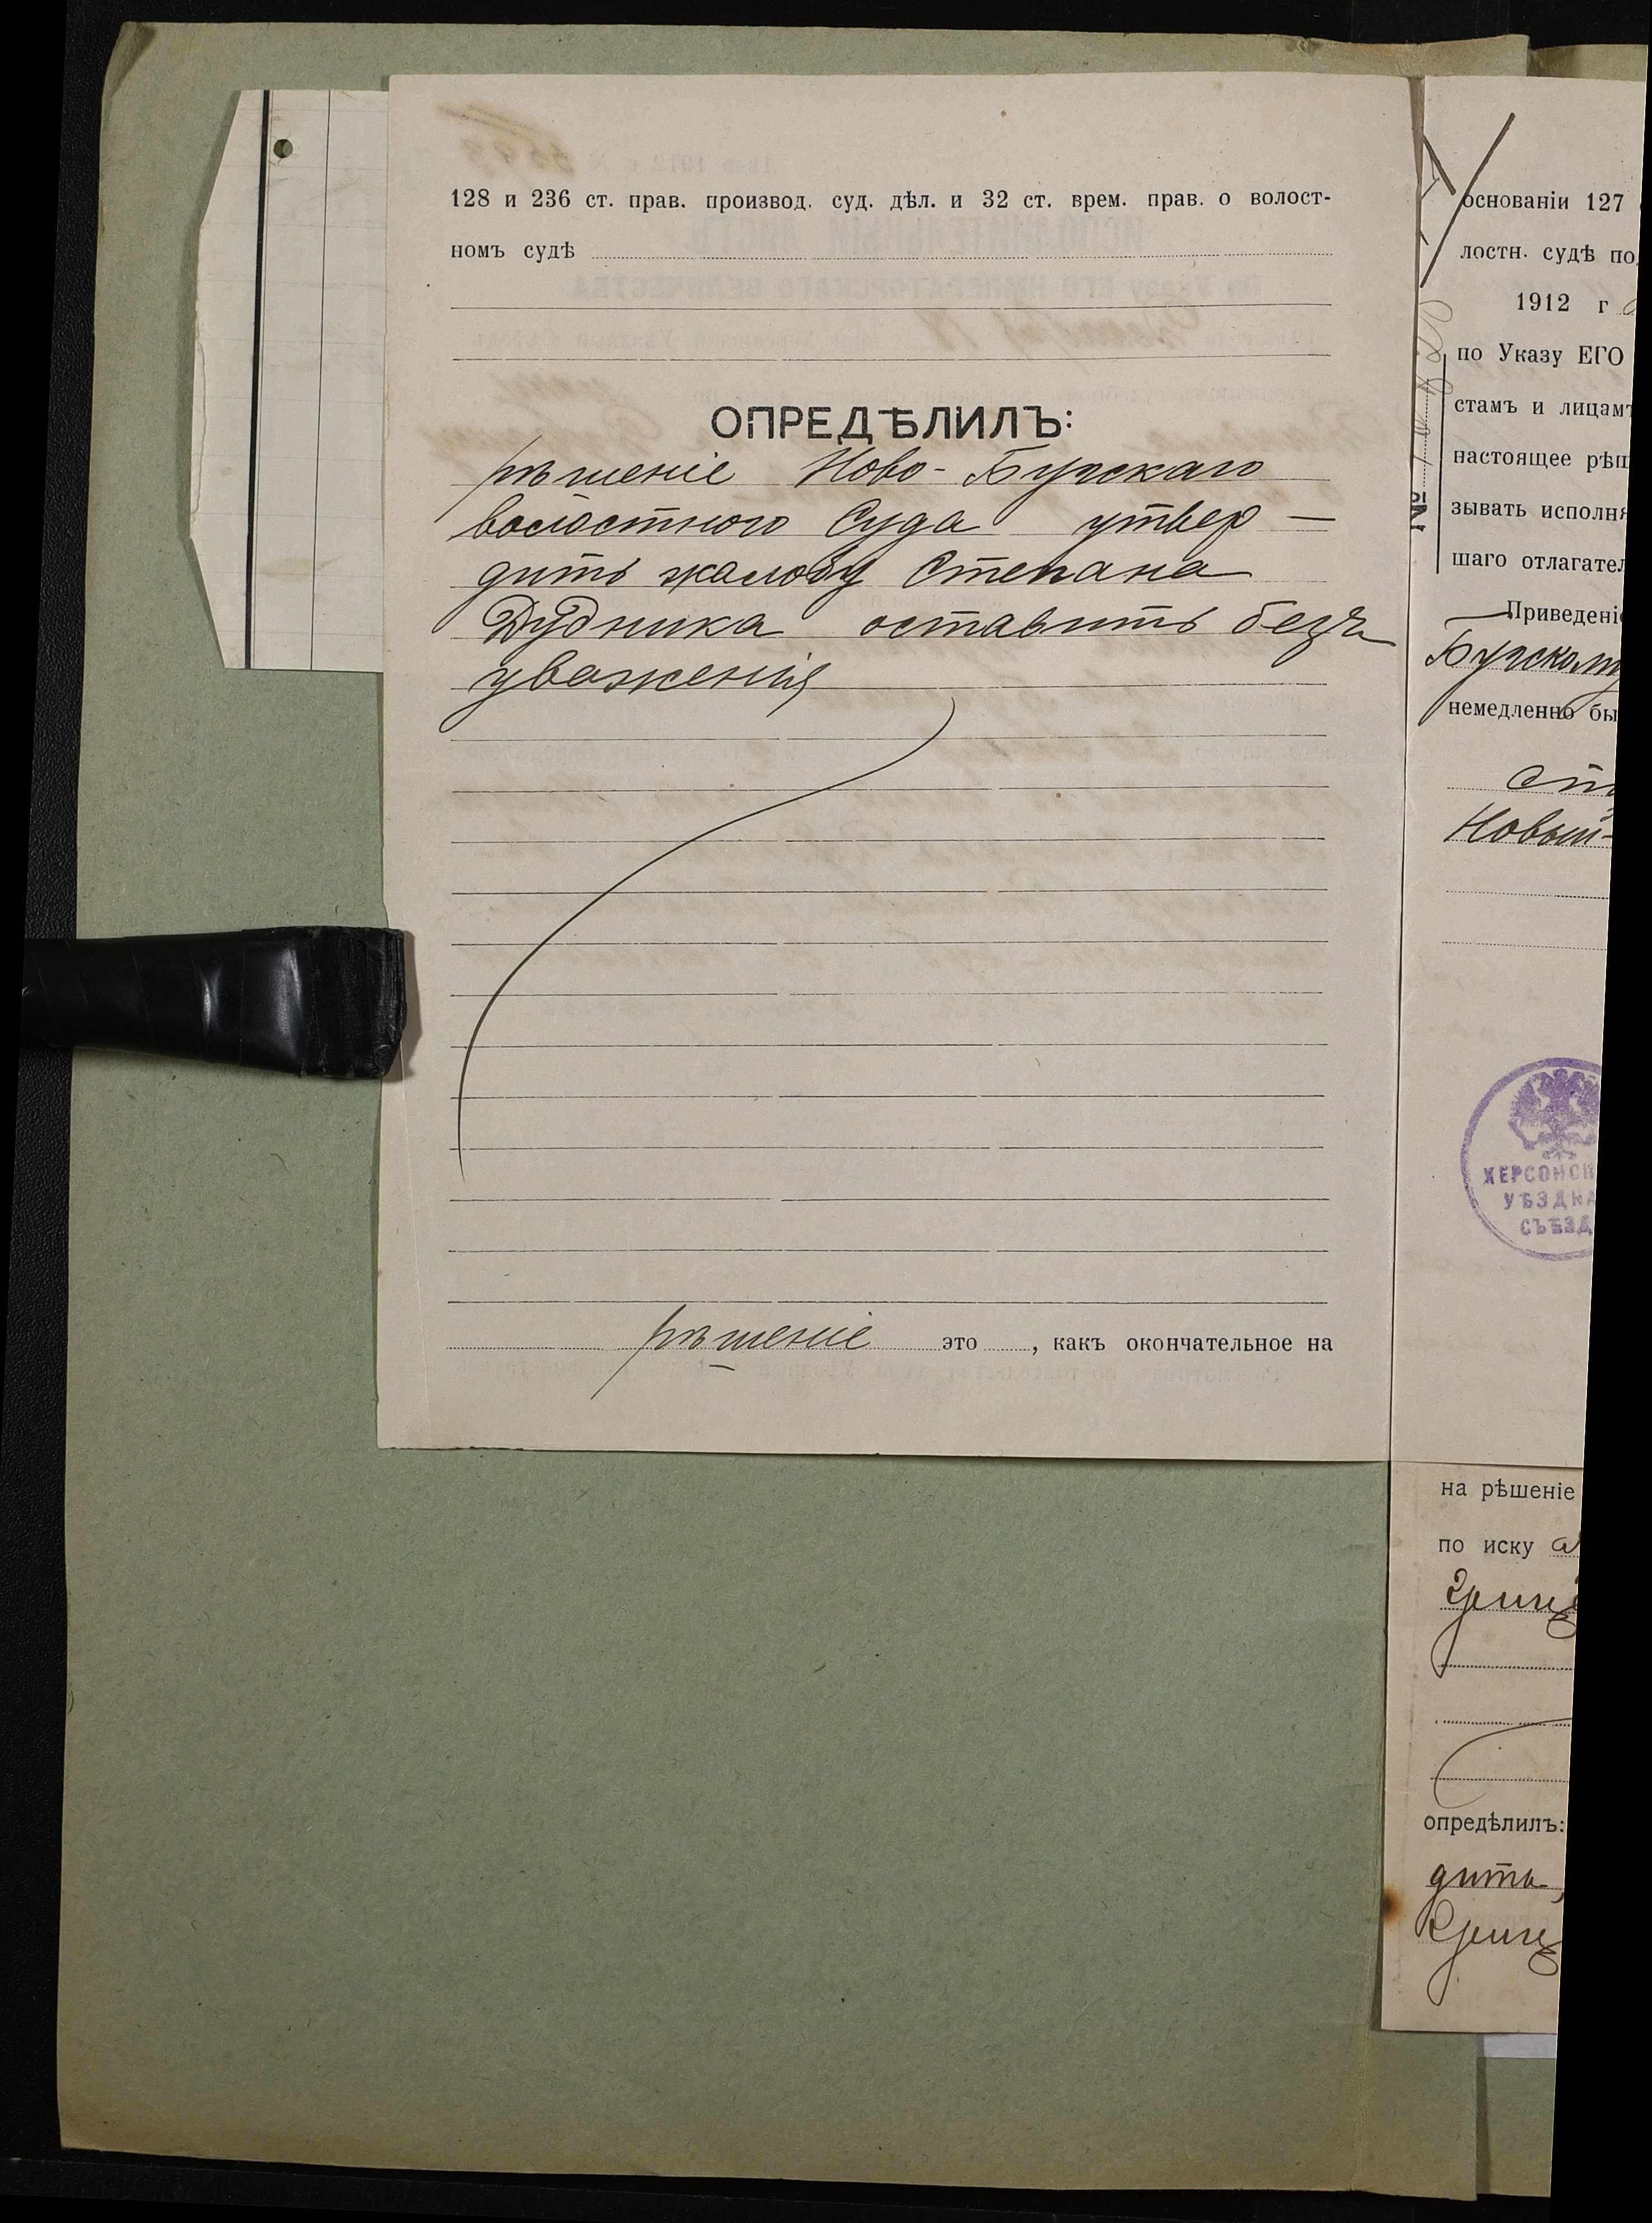 128 и 236 ст. прав. производ. суд. дѣл. и 32 ст. врем. прав. о волост-
номъ судѣ
ОПРЕДѢЛИЛЪ:
рѣшеніе Ново-Бугскаго
волостного Суда утвер-
дить жалобу Степана
Дудника оставить безъ
уваженія
рѣшеніе это , какъ окончательное на
основаніи 127
лостн. судѣ по
1912 г
по Указу ЕГО
стамъ и лицамъ
настоящее рѣш
зывать исполня
шаго отлагател
Приведеніе
Бугскому
немедленно бы
Новый-
ХЕРСОНСК
УѢЗДНА
СЪѢЗД
на рѣшеніе
по иску
опредѣлилъ:
дить,